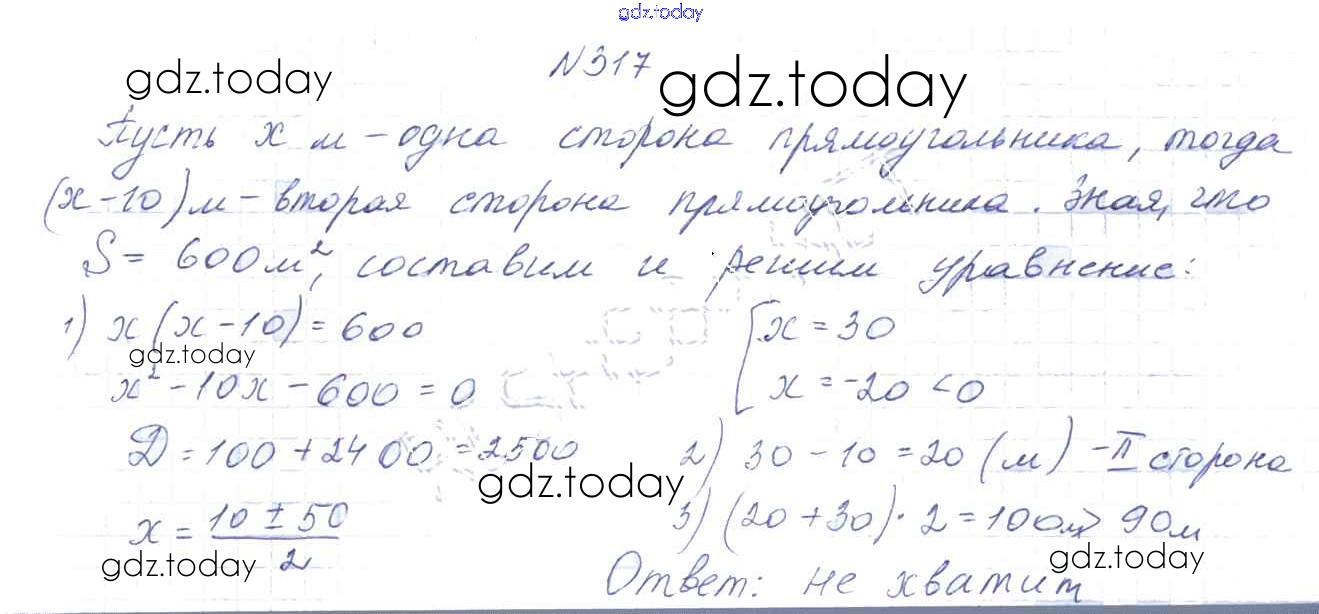 gdz.today
N317
gdz.today
gdz.today
Пусть x м - одна сторона прямоугольника, тогда
(x-10)м - вторая сторона прямоугольника. Зная, что
S = 600м², составим и решим уравнение:
1) x(x-10) = 600
gdz.today
x² - 10x - 600 = 0
D = 100 + 2400 = 2500
gdz.today
x = (10 ± 50)/2
gdz.today
[x = 30
x = -20 < 0
2) 30 - 10 = 20 (м) - II сторона
3) (20 + 30) · 2 = 100м > 90м
gdz.today
Ответ: не хватит